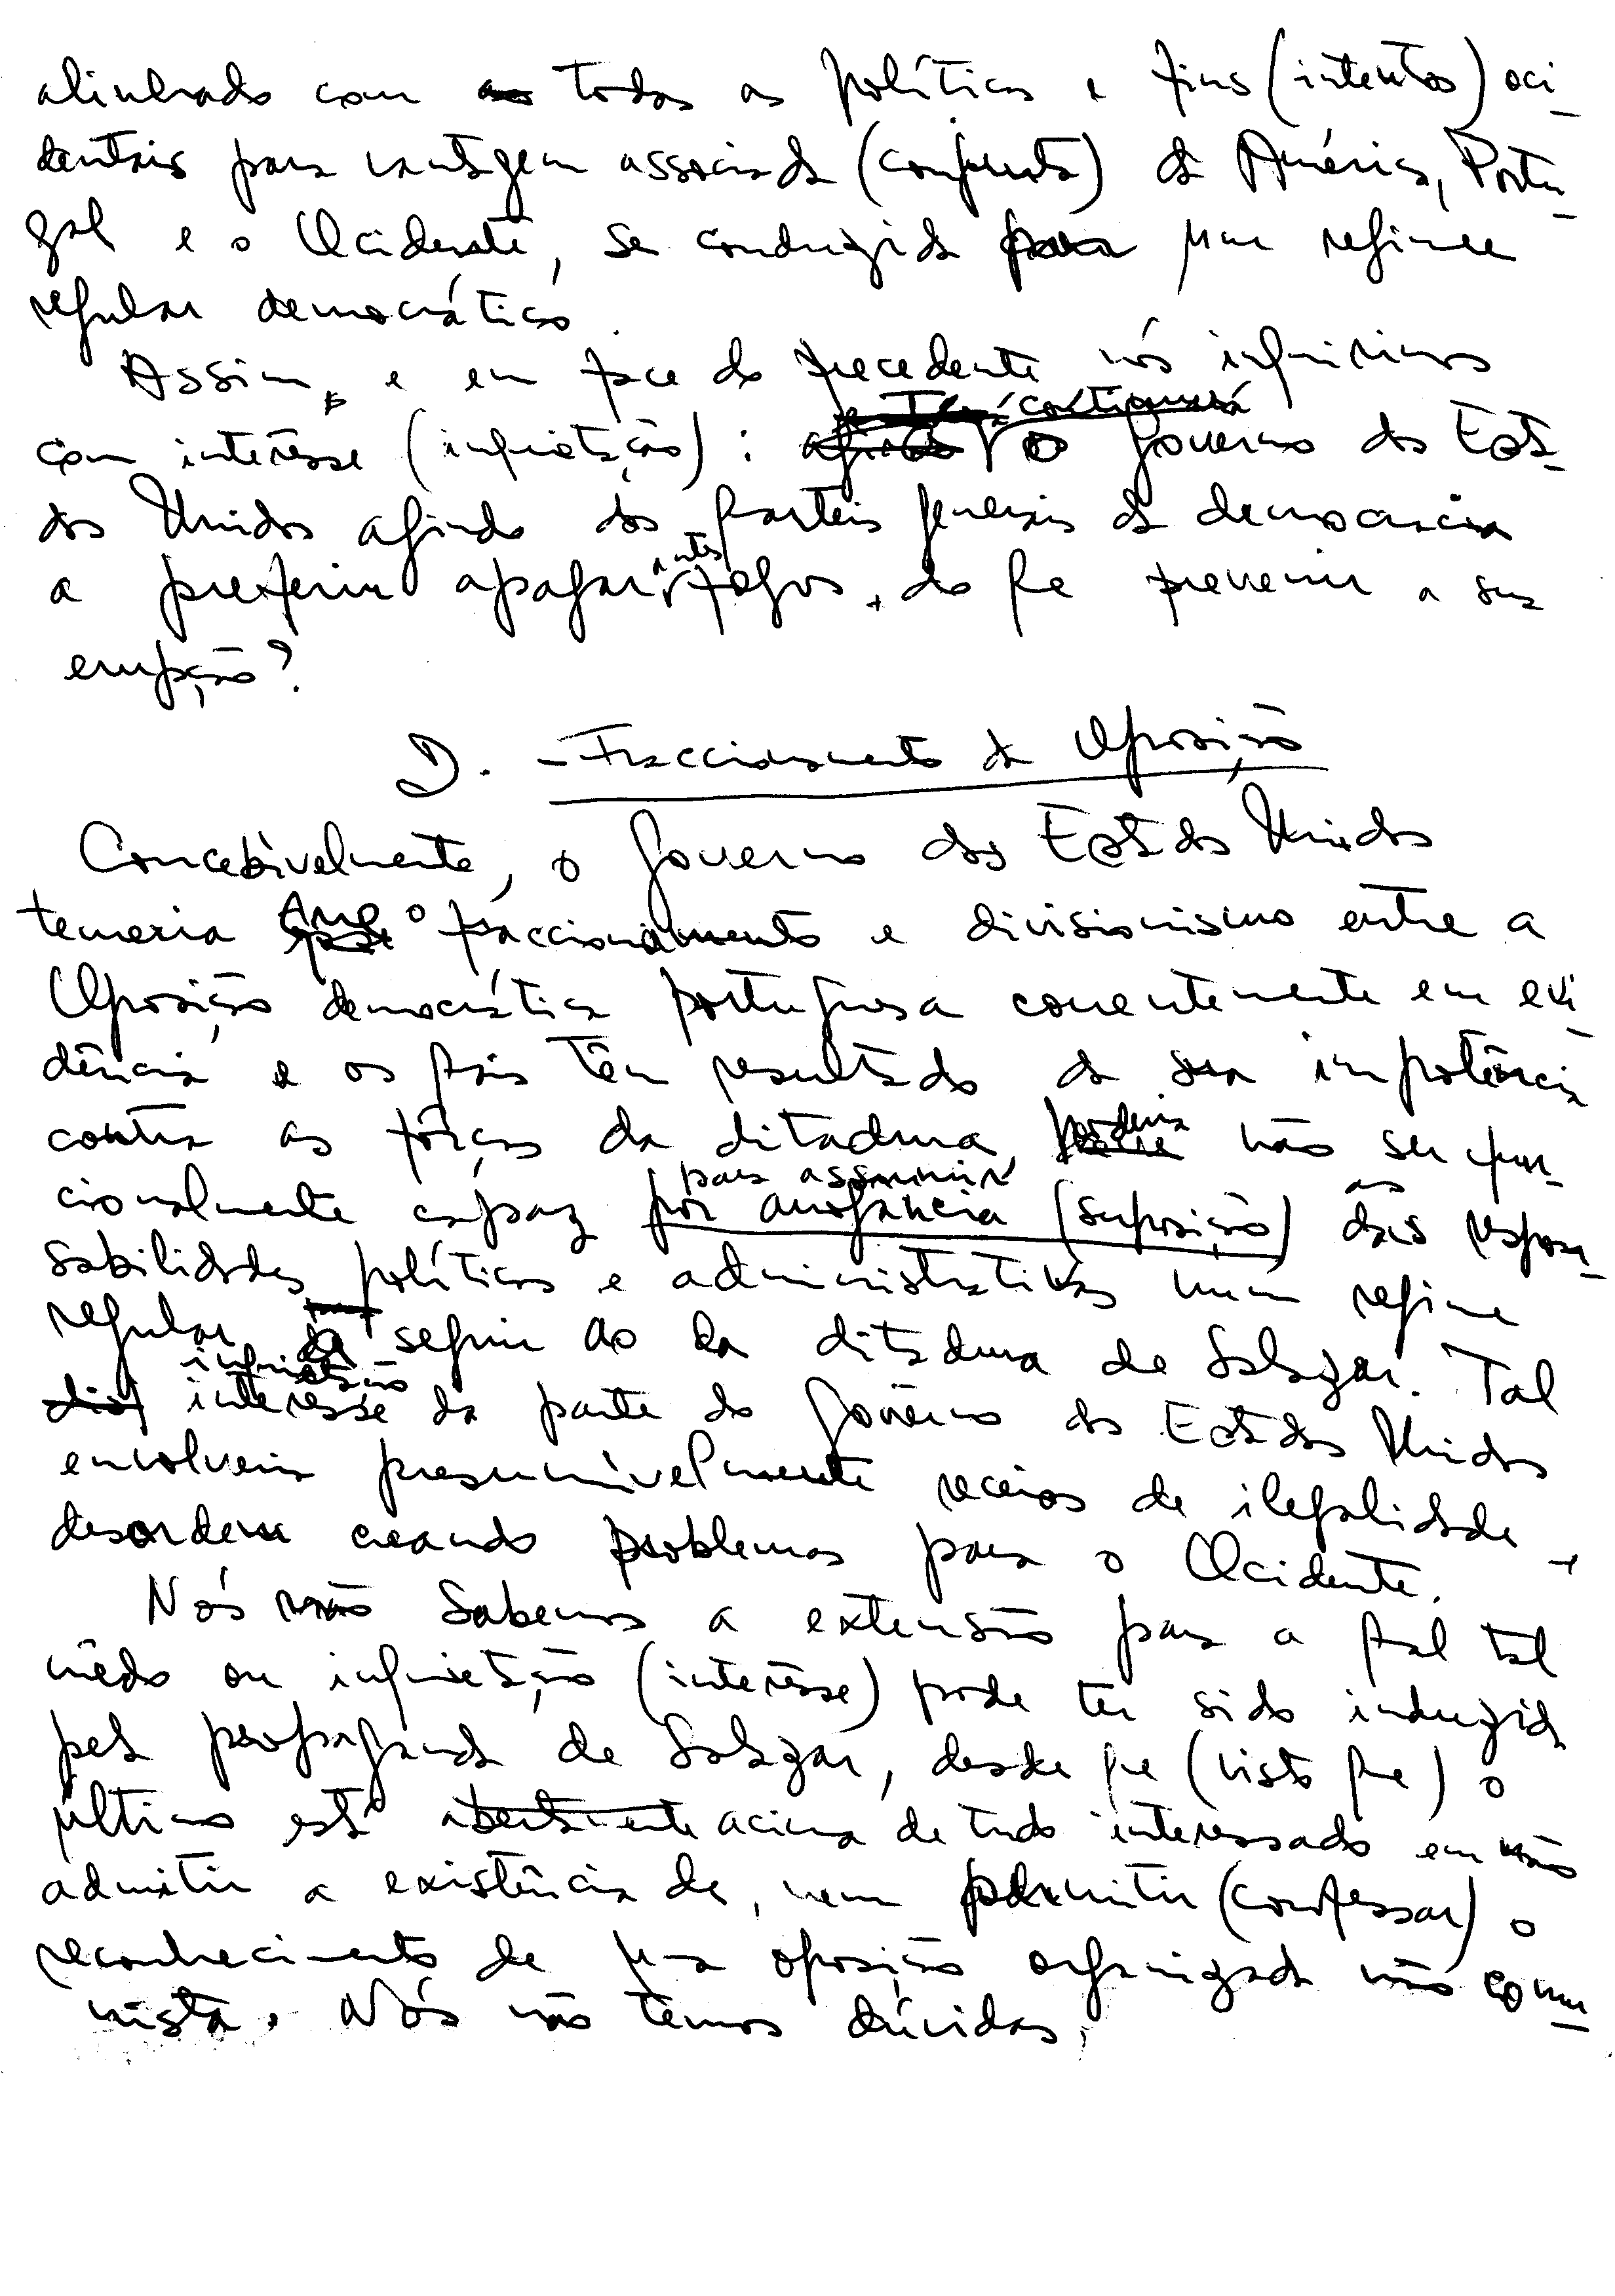 alinhado com todas as políticas e fins (intentos) oci-
dentais para vantagem associada (conjunta) da América, Portu-
gal e o Ocidente, se conduzida por um regime
regular democrático.
Assim, e em face do precedente nós inquirimos
continuará
com interêsse (inquietação): o Governo dos Esta-
dos Unidos afinado dos quarteis generais da democracia
antes
a preferir apagar fogos, do que prevenir a sua
erupção?
D. - Fraccionamento da Oposição
Concebivelmente, o Governo dos Estados Unidos
temeria que o fraccionamento e divisionismo entre a
Oposição democrática portuguesa correntemente em evi-
dência e os quais têm resultado da sua impotência
poderia
contra as fôrças da ditadura, não ser fun-
para assumir as
cionalmente capaz por arrogância (suposição) das respon-
sabilidades políticas e administrativas num regime
regular a seguir ao da ditadura de Salazar. Tal
inquietação
interesse da parte do Govêrno dos Estados Unidos
envolveria presumívelmente receios de ilegalidade e
desordem creando problemas para o Ocidente.
Nós não sabemos a extensão para a qual tal
mêdo ou inquietação (interêsse) pode ter sido induzida
pela propaganda de Salazar, desde que (visto que) o
último está abertamente acima de tudo interessado em não
admitir a existência de, nem permitir (confessar) o
reconhecimento de uma oposição organizada não comu-
nista. Nós não temos dúvidas,